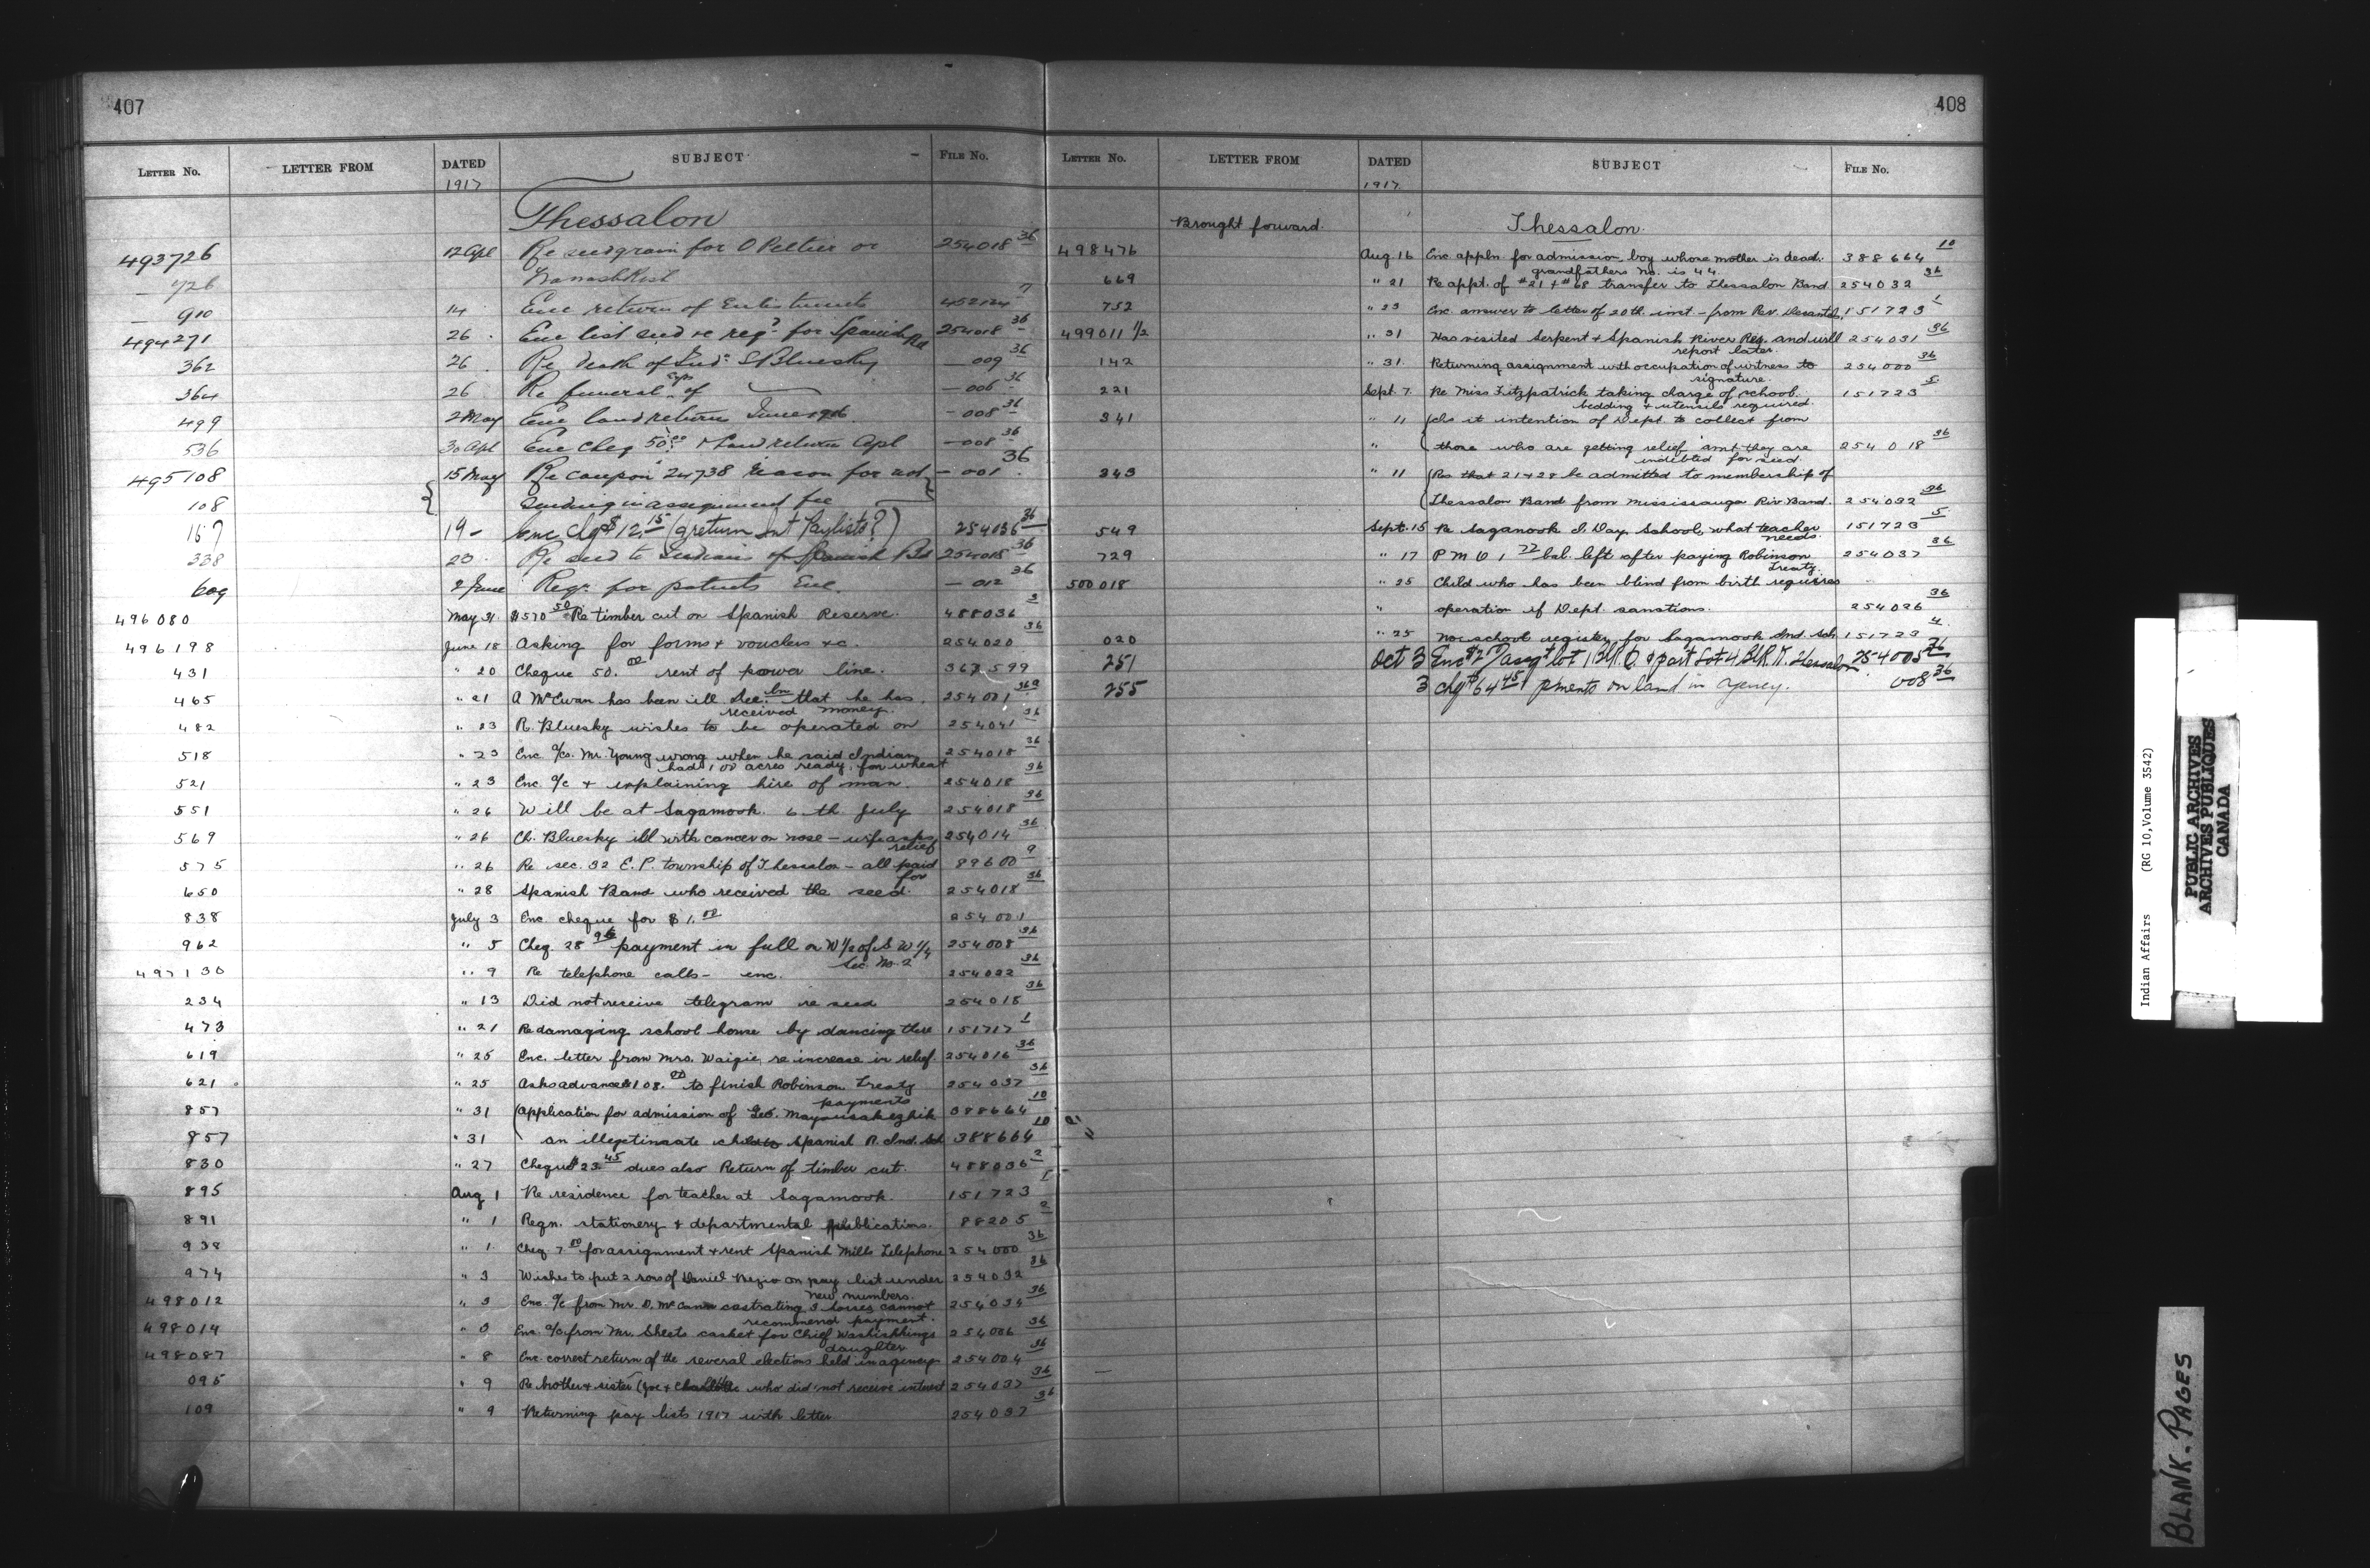 407
LETTER No. LETTER FROM DATED SUBJECT FILE No.
1917
Thessalon
493726 12 Apl Re seed grain for O Peltier or 254018 36
726
910 14 Enc return of Enlistments 452124 7
494271 26 Enc list seed re reqd for Spanish Rd 254018 36
362 26 Re death of Ind: S Bluesky — 009 36
364 26 Re funeral exps of — 006 36
499 2 May Enc land return — 008 36
536 30 Apl Enc Cheq 50.00 + Land return Apl — 008 36
495108 15 May Re coupon 24738 reason for not — 001 36
108 sending in assignment fee
167 19 - Enc chq $12.15 (return Int Paylists?) 254036 36
338 23 Re seed to Indians of Spanish Rd 254018 36
609 2 June Reqn for patents Enc. — 012 36
496080 May 31 $570.50 Re timber cut on Spanish Reserve. 488036 3
496198 June 18 Asking for forms + vouchers &c. 254020 36
431 " 20 Cheque 50.00 rent of power line. 367599
465 " 21 A McEwan has been ill. See him that he has 254001 36
received money.
482 " 23 R. Bluesky wishes to be operated on 254041 36
518 " 23 Enc. a/cs. Mr. Young wrong when he said Indian 254018 36
had 100 acres ready for wheat
521 " 23 Enc. a/c + explaining hire of man. 254018 36
551 " 26 Will be at Sagamook 6th July 254018 36
569 " 26 Ch. Bluesky ill with cancer on nose - wife asks 254014 36
relief
575 " 26 Re sec. 32 E. P. township of Thessalon - all paid 89600 9
for
650 " 28 Spanish Band who received the seed. 254018 36
838 July 3 Enc. cheque for $1.00 254001
962 " 5 Cheq. 28 96 payment in full on W 1/2 of S W 1/4 254008 36
Sec. No. 2
497130 " 9 Re telephone calls - enc. 254022 36
234 " 13 Did not receive telegram re seed 254018 36
473 " 21 Re damaging school house by dancing there 151717 1
619 " 25 Enc. letter from Mrs. Waigie, re increase in relief. 254016 36
621 " 25 Asks advance 108.00 to finish Robinson Treaty 254037 36
payments
857 " 31 (Application for admission of Geo. Mayousakezhik 388664 10
857 " 31 an illegetimate child to Spanish R. Ind. Sch 388664 10
830 " 27 Cheque $23.45 dues also Return of timber cut. 488036 2
895 Aug 1 Re residence for teacher at Sagamook. 151723 1
891 " 1 Reqn. stationery + departmental publications. 88205 2
938 " 1 Cheq 7.00 for assignment + rent Spanish Mills Telephone 254000 36
974 " 3 Wishes to put 2 sons of Daniel Negio on pay list under 254032 36
new numbers.
498012 " 3 Enc. a/c from Mr. D. McCann castrating 3 horses cannot 254034 36
recommend payment.
498014 " 3 Enc. a/c from Mr. Sheets casket for Chief Washishkings 254006 36
daughter
498087 " 8 Enc. correct return of the several elections held in agency 254004 36
095 " 9 Re brother + sister (Joe + Charlotte who did not receive interest 254037 36
109 " 9 Returning pay lists 1917 with letter. 254037 36
408
LETTER No. LETTER FROM DATED SUBJECT FILE No.
1917
Brought forward. Thessalon.
498476 Aug. 16 Enc. appln. for admission, boy whose mother is dead. 388664 10
grandfathers no. is 44.
669 " 21 Re appt. of #21 + #68 transfer to Thessalon Band 254032 36
752 " 23 Enc answer to letter of 20th. inst - from Rev. 151723 1
499011 1/2 " 31 Has visited Serpent + Spanish River Res. and will 254031 36
report later.
142 " 31 Returning assignment with occupation of witness to 254000 36
signature.
221 Sept. 7 Re Miss Fitzpatrick taking charge of school. 151723 5
bedding + utensils required.
341 " 11 (Is it intention of Dept. to collect from
" those who are getting relief amt they are 254018 36
indebted for seed.
343 " 11 (Res that 21 + 28 be admitted to membership of
Thessalon Band from Mississauga Riv. Band. 254032 36
549 Sept. 15 Re Saganook I. Day School, what teacher 151723 5
needs.
729 " 17 P M O 1.22 bal. left after paying Robinson 254037 36
Treaty.
500018 " 25 Child who has been blind from birth requires
" operation if Dept. sanctions. 254026 36
020 " 25 No school register for Sagamook Ind Sch 151723 4
251 Oct 3 Enc $2.00/ assgt lot 1 Blk. Q & part Lot 4 Blk. T. Thessalon 254005 36
255 3 chq $64.45 pments on land in agency. 008 36
Indian Affairs (RG 10, Volume 3542)
PUBLIC ARCHIVES
ARCHIVES PUBLIQUES
CANADA
BLANK. PAGES